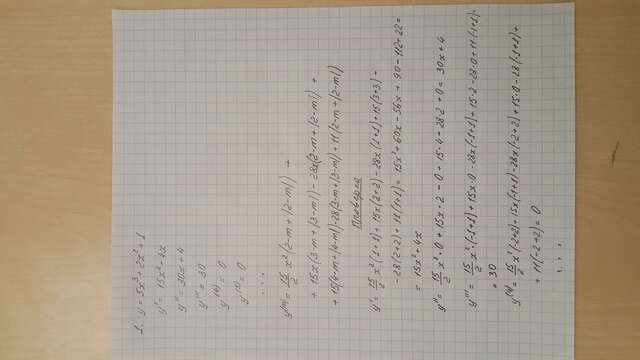 1. y = 5x³+2x²+1
y' = 15x²+4x
y'' = 30x+4
y''' = 30
y⁽⁴⁾ = 0
y⁽⁵⁾ = 0
. . .
y⁽ᵐ⁾ = 15/2 x²(2-m+|2-m|) +
+ 15x(3-m+|3-m|) - 28x(2-m+|2-m|) +
+ 15(4-m+|4-m|) - 28(3-m+|3-m|) + 11(2-m+|2-m|)
Проверка
y' = 15/2 x²(1+1) + 15x(2+2) - 28x(1+1) + 15(3+3) -
- 28(2+2) + 11(1+1) = 15x² + 60x - 56x + 90 - 112 + 22 =
= 15x² + 4x
y'' = 15/2 x²·0 + 15x·2 - 0 + 15·4 - 28·2 + 0 = 30x + 4
y''' = 15/2 x²·(-1+1) + 15x·0 - 28x(-1+1) + 15·2 - 28·0 + 11(-1+1) =
= 30
y⁽⁴⁾ = 15/2 x²(-2+2) + 15x(-1+1) - 28x(-2+2) + 15·0 - 28(-1+1) +
+ 11(-2+2) = 0
. . .